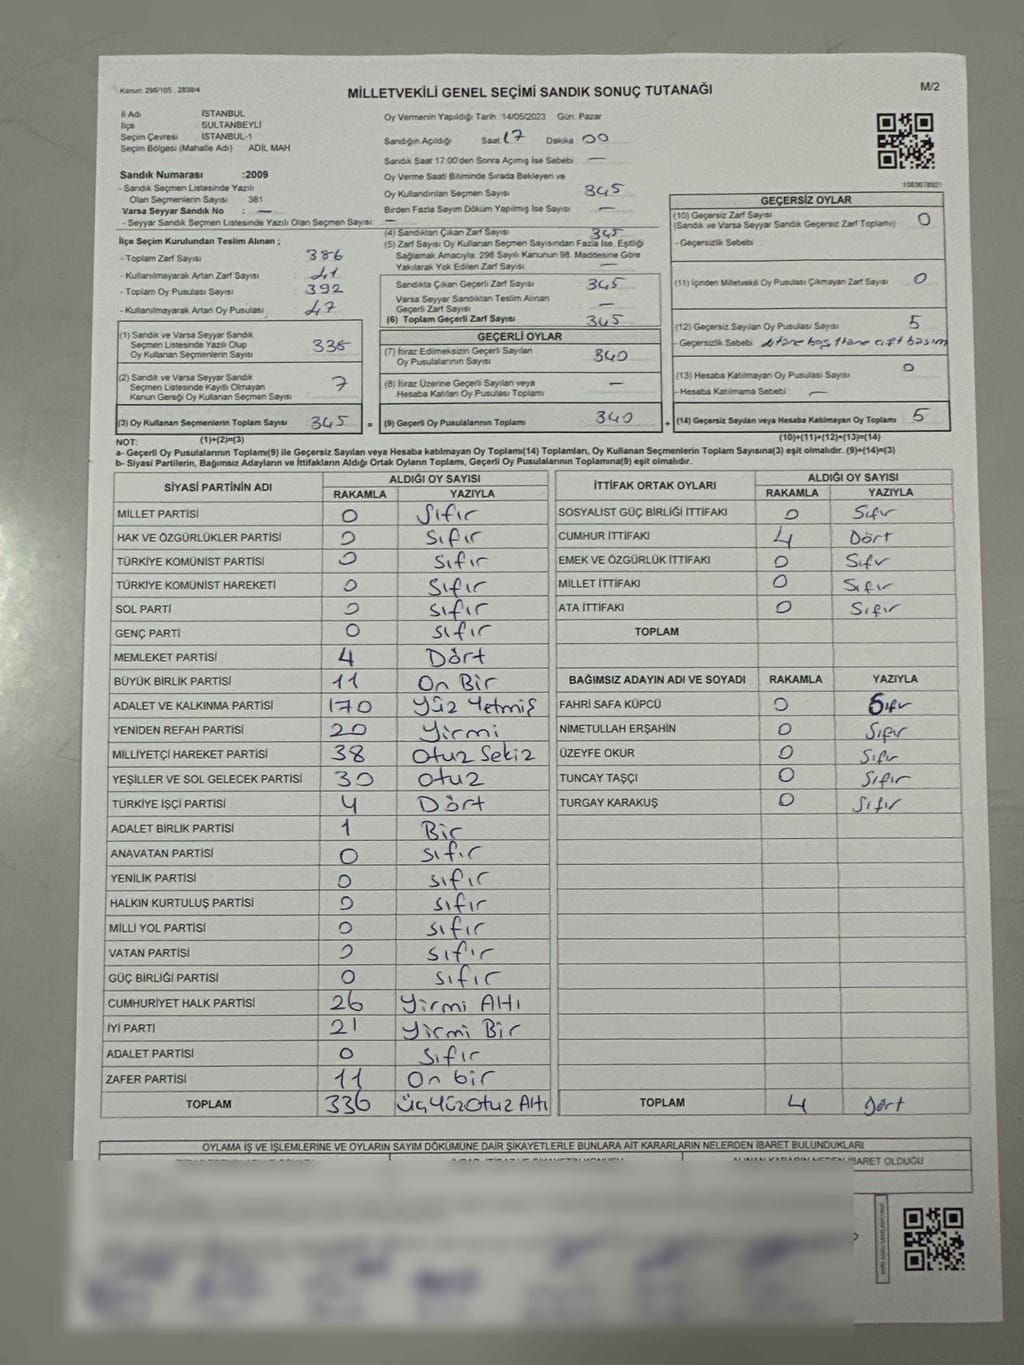 Kanun: 298/105 , 2839/4
MİLLETVEKİLİ GENEL SEÇİMİ SANDIK SONUÇ TUTANAĞI
M/2
İl Adı : İSTANBUL
İlçe : SULTANBEYLİ
Seçim Çevresi : İSTANBUL-1
Seçim Bölgesi (Mahalle Adı) : ADİL MAH.
Sandık Numarası :2009
- Sandık Seçmen Listesinde Yazılı
Olan Seçmenlerin Sayısı : 381
Varsa Seyyar Sandık No : —
- Seyyar Sandık Seçmen Listesinde Yazılı Olan Seçmen Sayısı:
İlçe Seçim Kurulundan Teslim Alınan ;
- Toplam Zarf Sayısı : 386
- Kullanılmayarak Artan Zarf Sayısı : 41
- Toplam Oy Pusulası Sayısı : 392
- Kullanılmayarak Artan Oy Pusulası : 47
(1) Sandık ve Varsa Seyyar Sandık
Seçmen Listesinde Yazılı Olup
Oy Kullanan Seçmenlerin Sayısı 338
(2) Sandık ve Varsa Seyyar Sandık
Seçmen Listesinde Kayıtlı Olmayan
Kanun Gereği Oy Kullanan Seçmen Sayısı 7
(3) Oy Kullanan Seçmenlerin Toplam Sayısı 345 =
Oy Vermenin Yapıldığı Tarih :14/05/2023 Gün: Pazar
Sandığın Açıldığı Saat: 17 Dakika: 00
Sandık Saat 17:00'den Sonra Açılmış İse Sebebi : —
Oy Verme Saati Bitiminde Sırada Bekleyen ve
Oy Kullandırılan Seçmen Sayısı : 345
Birden Fazla Sayım Döküm Yapılmış İse Sayısı : —
(4) Sandıktan Çıkan Zarf Sayısı : 345
(5) Zarf Sayısı Oy Kullanan Seçmen Sayısından Fazla İse, Eşitliği
Sağlamak Amacıyla, 298 Sayılı Kanunun 98. Maddesine Göre
Yakılarak Yok Edilen Zarf Sayısı : —
Sandıkta Çıkan Geçerli Zarf Sayısı : 345
Varsa Seyyar Sandıktan Teslim Alınan
Geçerli Zarf Sayısı : —
(6) Toplam Geçerli Zarf Sayısı : 345
GEÇERLİ OYLAR
(7) İtiraz Edilmeksizin Geçerli Sayılan
Oy Pusulalarının Sayısı : 340
(8) İtiraz Üzerine Geçerli Sayılan veya
Hesaba Katılan Oy Pusulası Toplamı : —
(9) Geçerli Oy Pusulalarının Toplamı : 340 +
1083678921
GEÇERSİZ OYLAR
(10) Geçersiz Zarf Sayısı : 0
(Sandık ve Varsa Seyyar Sandık Geçersiz Zarf Toplamı)
- Geçersizlik Sebebi :
(11) İçinden Milletvekili Oy Pusulası Çıkmayan Zarf Sayısı : 0
(12) Geçersiz Sayılan Oy Pusulası Sayısı : 5
- Geçersizlik Sebebi : 4 tane boş 1 tane çift basım
(13) Hesaba Katılmayan Oy Pusulası Sayısı : 0
- Hesaba Katılmama Sebebi : —
(14) Geçersiz Sayılan veya Hesaba Katılmayan Oy Toplamı : 5
NOT: (1)+(2)=(3) (10)+(11)+(12)+(13)=(14)
a- Geçerli Oy Pusulalarının Toplamı(9) ile Geçersiz Sayılan veya Hesaba katılmayan Oy Toplamı(14) Toplamları, Oy Kullanan Seçmenlerin Toplam Sayısına(3) eşit olmalıdır. (9)+(14)=(3)
b- Siyasi Partilerin, Bağımsız Adayların ve İttifakların Aldığı Ortak Oyların Toplamı, Geçerli Oy Pusulalarının Toplamına(9) eşit olmalıdır.
SİYASİ PARTİNİN ADI ALDIĞI OY SAYISI
RAKAMLA YAZIYLA
MİLLET PARTİSİ 0 Sıfır
HAK VE ÖZGÜRLÜKLER PARTİSİ 0 Sıfır
TÜRKİYE KOMÜNİST PARTİSİ 0 Sıfır
TÜRKİYE KOMÜNİST HAREKETİ 0 Sıfır
SOL PARTİ 0 Sıfır
GENÇ PARTİ 0 Sıfır
MEMLEKET PARTİSİ 4 Dört
BÜYÜK BİRLİK PARTİSİ 11 On Bir
ADALET VE KALKINMA PARTİSİ 170 Yüz Yetmiş
YENİDEN REFAH PARTİSİ 20 Yirmi
MİLLİYETÇİ HAREKET PARTİSİ 38 Otuz Sekiz
YEŞİLLER VE SOL GELECEK PARTİSİ 30 Otuz
TÜRKİYE İŞÇİ PARTİSİ 4 Dört
ADALET BİRLİK PARTİSİ 1 Bir
ANAVATAN PARTİSİ 0 Sıfır
YENİLİK PARTİSİ 0 Sıfır
HALKIN KURTULUŞ PARTİSİ 0 Sıfır
MİLLİ YOL PARTİSİ 0 Sıfır
VATAN PARTİSİ 0 Sıfır
GÜÇ BİRLİĞİ PARTİSİ 0 Sıfır
CUMHURİYET HALK PARTİSİ 26 Yirmi Altı
İYİ PARTİ 21 Yirmi Bir
ADALET PARTİSİ 0 Sıfır
ZAFER PARTİSİ 11 On bir
TOPLAM 336 Üç Yüz Otuz Altı
İTTİFAK ORTAK OYLARI ALDIĞI OY SAYISI
RAKAMLA YAZIYLA
SOSYALİST GÜÇ BİRLİĞİ İTTİFAKI 0 Sıfır
CUMHUR İTTİFAKI 4 Dört
EMEK VE ÖZGÜRLÜK İTTİFAKI 0 Sıfır
MİLLET İTTİFAKI 0 Sıfır
ATA İTTİFAKI 0 Sıfır
TOPLAM
BAĞIMSIZ ADAYIN ADI VE SOYADI RAKAMLA YAZIYLA
FAHRİ SAFA KÜPCÜ 0 Sıfır
NİMETULLAH ERŞAHİN 0 Sıfır
ÜZEYFE OKUR 0 Sıfır
TUNCAY TAŞÇI 0 Sıfır
TURGAY KARAKUŞ 0 Sıfır
TOPLAM 4 Dört
OYLAMA İŞ VE İŞLEMLERİNE VE OYLARIN SAYIM DÖKÜMÜNE DAİR ŞİKAYETLERLE BUNLARA AİT KARARLARIN NELERDEN İBARET BULUNDUKLARI
ALINAN KARARIN NEDEN İBARET OLDUĞU